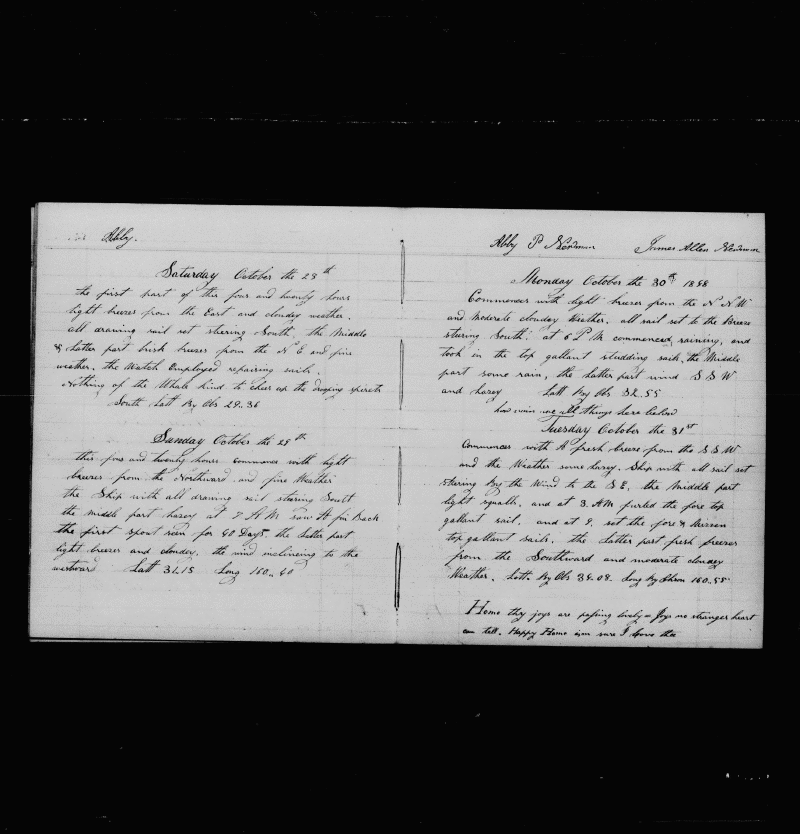 Abby.
Saturday October the 28th
the first part of this four and twenty hours
light breezes from the East and cloudey weather.
all drawing sail set stering South, the Middle
& Latter part brisk breezes from the N E and fine
weather. the Watch Employed repairing sails.
Nothing of the Whale kind to cheer up the drooping spirets
South Latt By Obs 29.36
Sunday October the 29th
this four and twenty hours commences with light
breezes from the Northward and fine Weather
the Ship with all drawing sail stering South
the middle part hazey at 7 A M saw A fin Back
the first spout seen for 40 Days. the Latter part
light breezes and cloudey. the wind inclineing to the
westward Latt 31.15 Long 160.40
Abby P Nordman James Allen Nordman
Monday October the 30th 1858
Commences with light breezes from the N N W
and moderate cloudey Weather. all sail set to the Breeze
stering South. at 6 P M commenced raining, and
took in the top gallant studding sails, the Middle
part some rain, the Latter part wind S S W
and hazey Latt By Obs 32.55
how vain are all things here below
Tuesday October the 31st
Commences with A fresh breeze from the S S W
and the Weather some hazey. Ship with all sail set
stering By the Wind to the S E. the Middle part
light squalls, and at 3. AM furled the fore top
gallant sail. and at 9. set the fore & Mizzen
top gallant sails. the Latter part fresh breezes
from the Southward and moderate cloudey
Weather. Latt. By Obs 34.08. Long By Chron 160.55
Home thy joys are passing lovely = Joys no stranger heart
can tell. Happy Home sure I Love thee